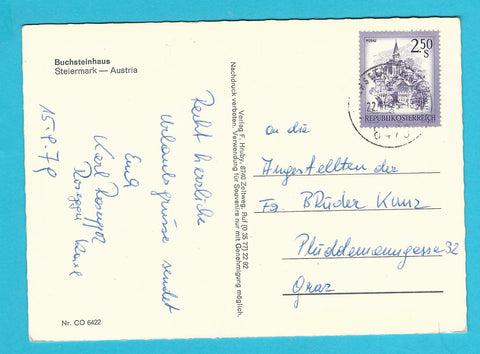 Buchsteinhaus
Steiermark — Austria
15.8.78
Recht herzliche
Urlaubsgrüsse sendet
Eng
Karl
Karl
Nr. CO 6422
Verlag F. Hruby, 8740 Zeltweg, Ruf (0 35 77) 22 92
Nachdruck verboten. Verwendung für Souvenirs nur mit Genehmigung möglich.
MURAU
2.50
S
REPUBLIK ÖSTERREICH
an die
Angestellten der
Fa. Brüder Kunz
Plüddemanngasse 32
Graz